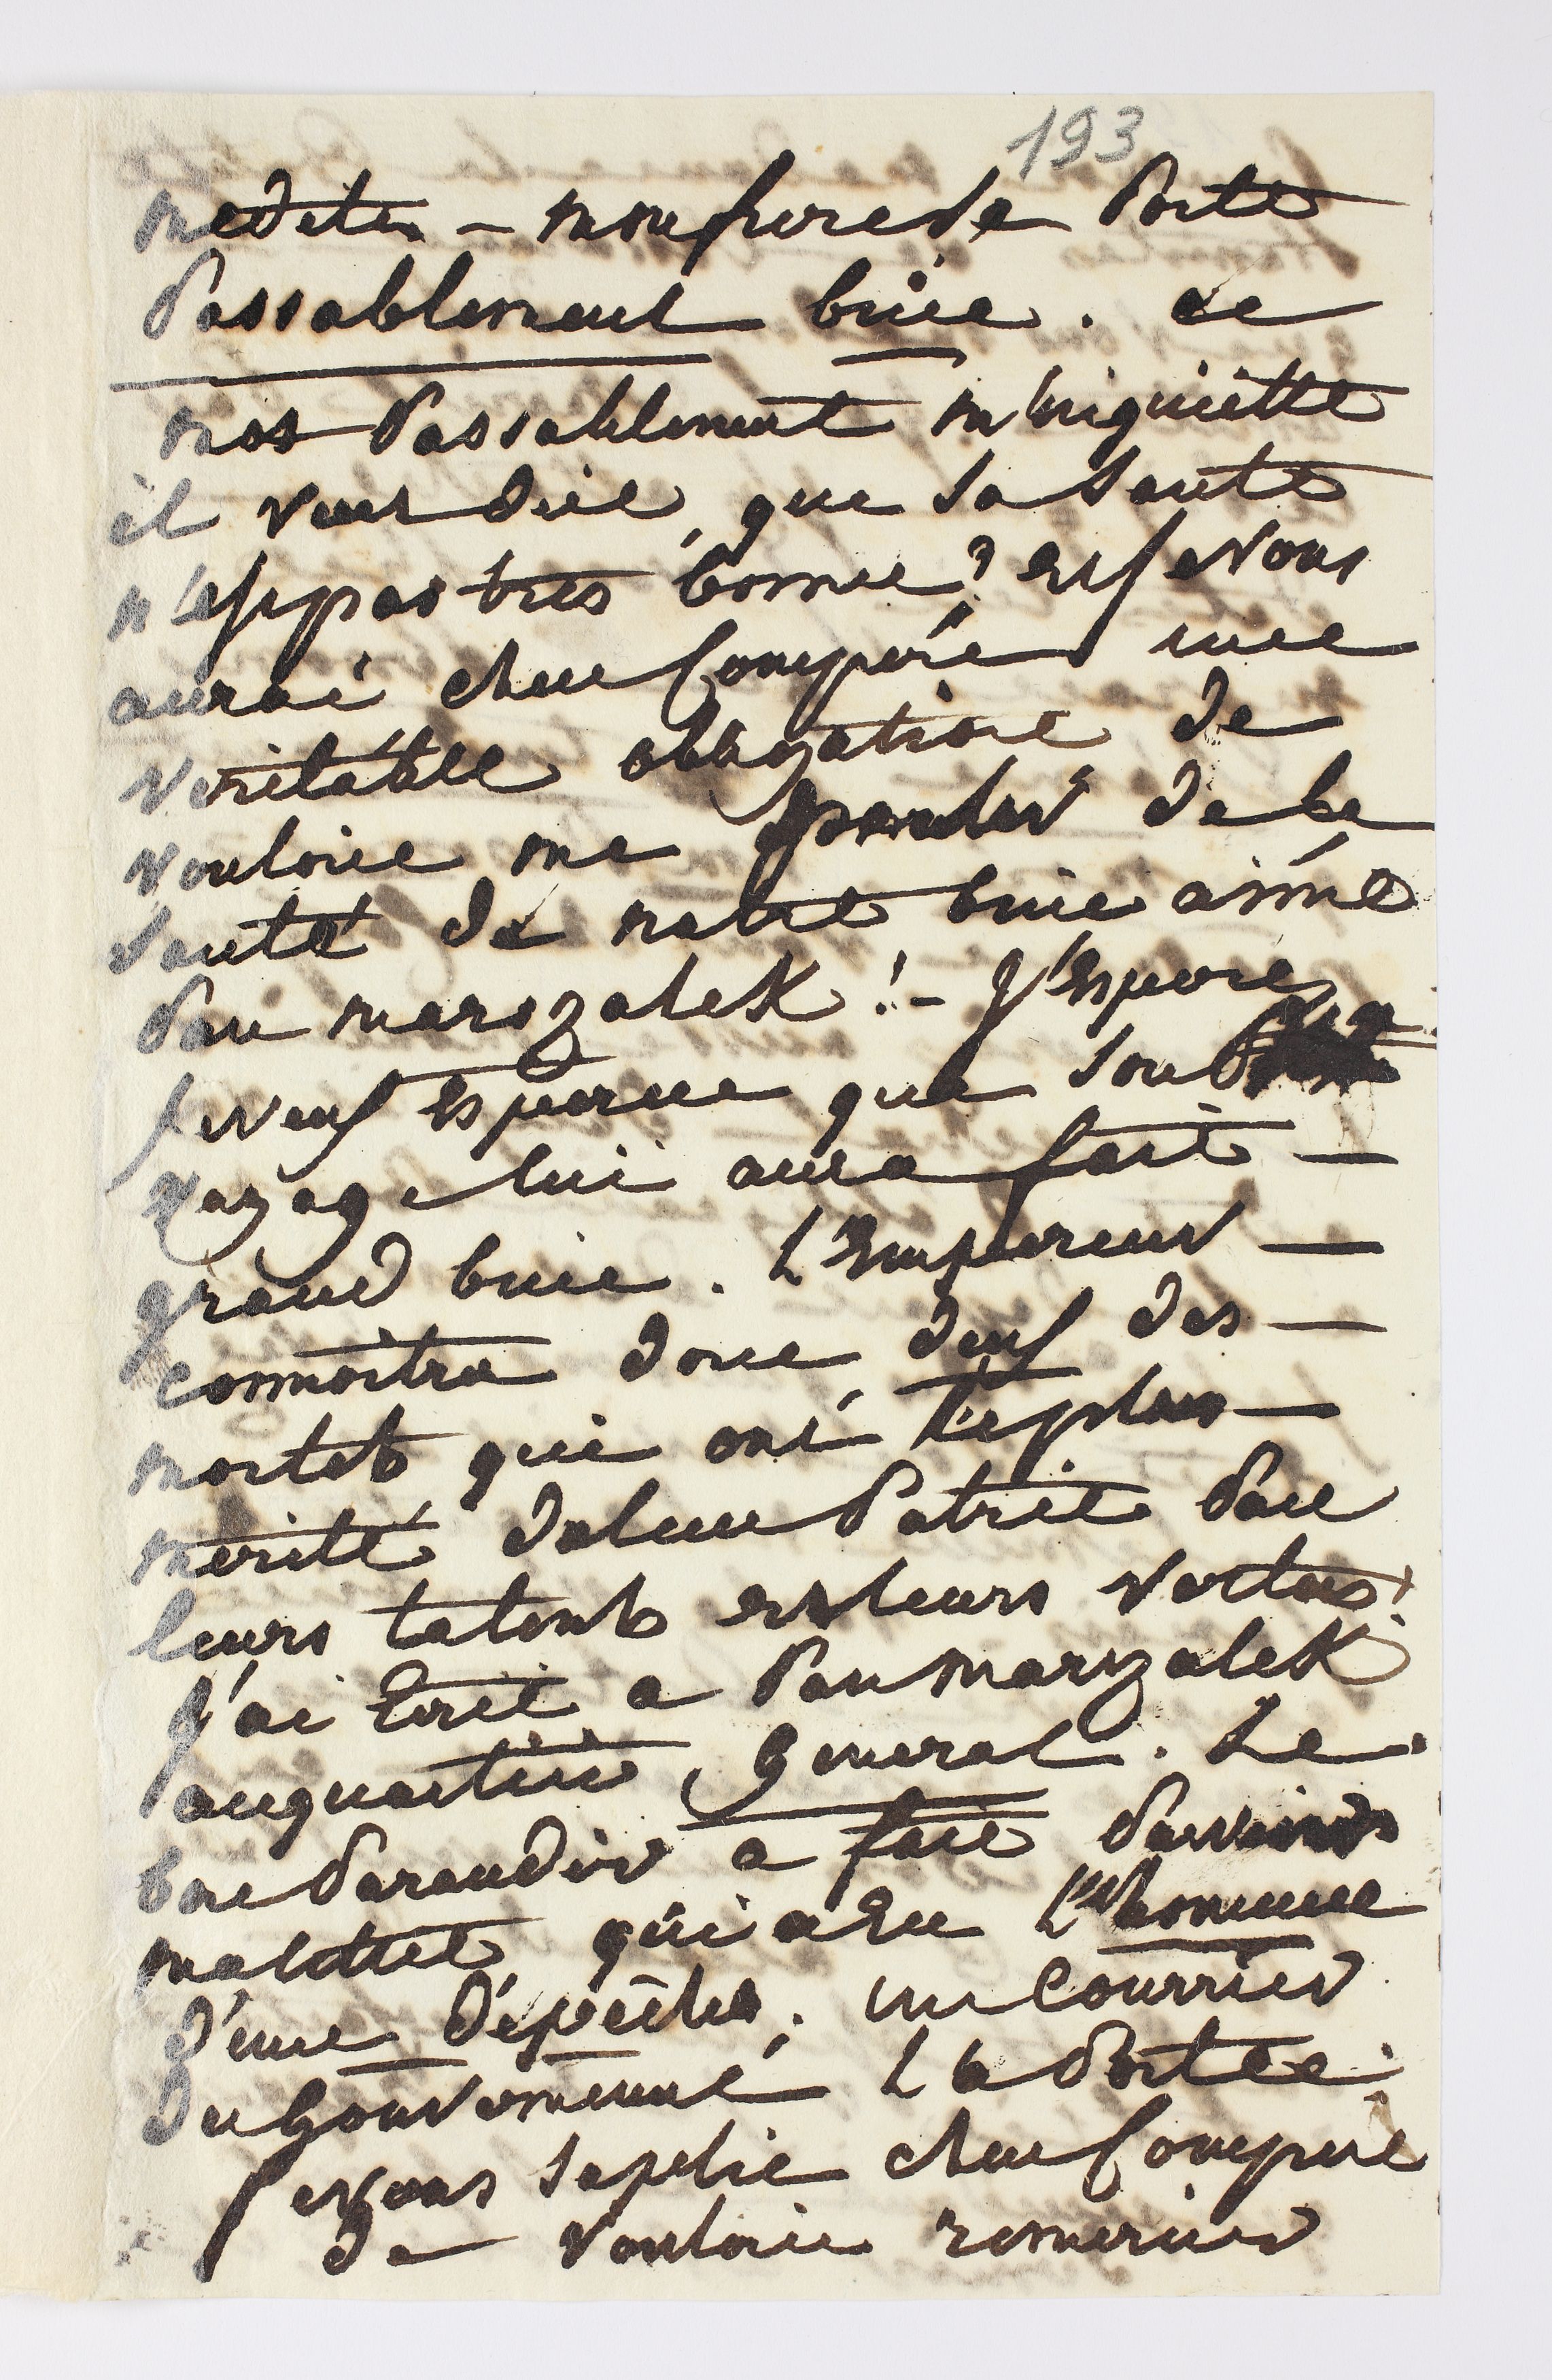 193
mediter - mon frere se Porte
Passablement bien. ce
mot Passablement m'inquiette
il veut dire que sa santé
n'est pas tres bonne? et je vous
aurai cher Compere une
veritable obligation de
vouloir me parler de la
santé de notre bien aimé
Pan marszalek! - J'espere
je veux esperer que son
voyage lui aura fait -
grand bien. L'Empereur -
connoitra donc deux des -
mortels qui ont le plus -
merité de leur Patrie Par
leurs talents et leurs vertus!
J'ai Ecrit a Pan Marszalek
au quartier General. Le
bon Parandier a fait Parvenir
ma lettre qui a Eu L'honneur
d'une dépeche. un Courrier
du Gouvernement L'a Portée.
Je vous suplie cher Compere
de vouloir remercier